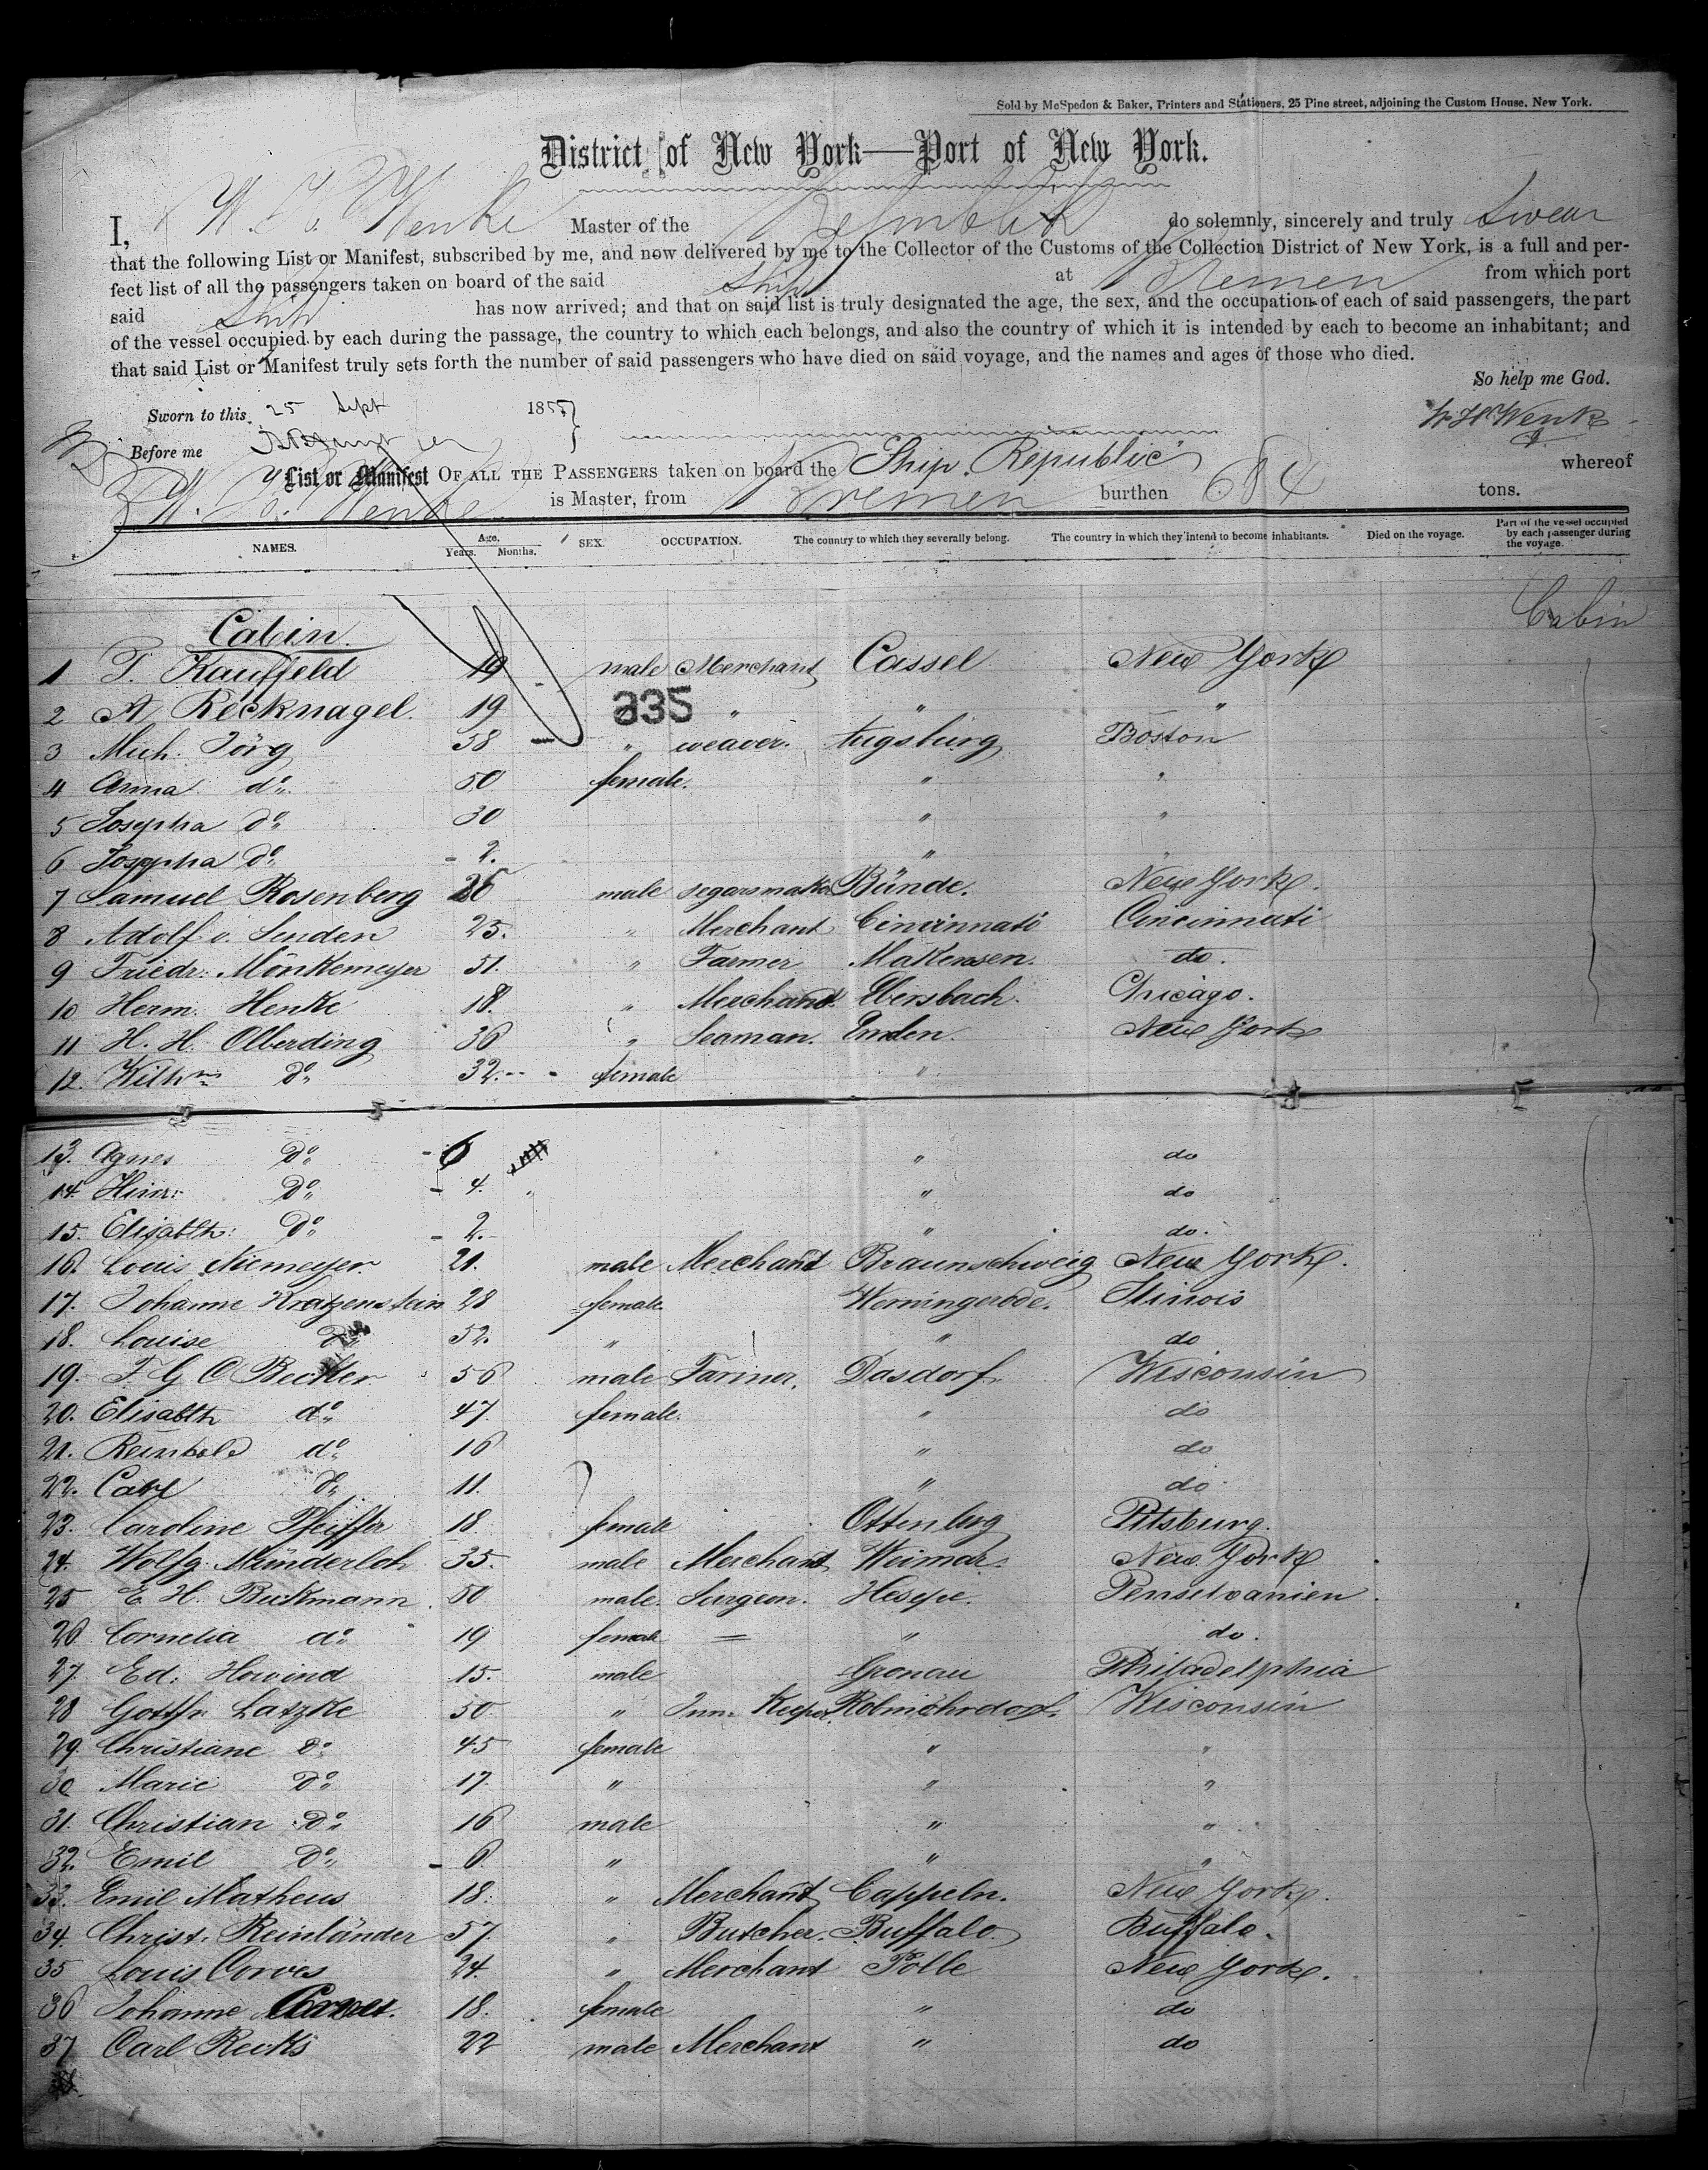 Sold by McSpedon & Baker, Printers and Stationers, 25 Pine street, adjoining the Custom House, New York.
District of New York—Port of New York.
I, W. H. Wenke Master of the Republik do solemnly, sincerely and truly swear
that the following List or Manifest, subscribed by me, and now delivered by me to the Collector of the Customs of the Collection District of New York, is a full and per-
fect list of all the passengers taken on board of the said Ship at Bremen from which port
said Ship has now arrived; and that on said list is truly designated the age, the sex, and the occupation of each of said passengers, the part
of the vessel occupied by each during the passage, the country to which each belongs, and also the country of which it is intended by each to become an inhabitant; and
that said List or Manifest truly sets forth the number of said passengers who have died on said voyage, and the names and ages of those who died.
So help me God.
Sworn to this 25 Sept 1855
W H Wenke
Before me
List or Manifest OF ALL THE PASSENGERS taken on board the Ship Republic whereof
W. H. Wenke is Master, from Bremen burthen 684 tons.
NAMES. Age. Years. Months. SEX. OCCUPATION. The country to which they severally belong. The country in which they intend to become inhabitants. Died on the voyage. Part of the vessel occupied by each passenger during the voyage.
Cabin
Cabin.
1 T. Kauffeld 19 male Merchant Cassel New York
2 A. Recknagel. 19 " " " "
335
3 Mich. Jörg 58 " weaver. Augsburg Boston
4 Anna do 50 female. " "
5 Josepha do 30 " "
6 Josepha do - 2. " "
7 Samuel Rosenberg 26 male segarsmaker Bünde. New York.
8 Adolf v. Linden 25. " Merchant Cincinnati Cincinnati
9 Friedr. Mönkemeyer 51. " Farmer Makensen. do.
10 Herm. Henke 18. " Merchant. Ebersbach. Chicago.
11 H. H. Olberding 36 " Seaman. Emden. New York
12. Wilhm do 32. female "
13. Agnes Do - 6 " do
14. Hinr: Do - 4. " do
15. Elisabth: Do - 2. " do.
16. Louis Niemeyer. 21. male Merchant Braunschweig New York.
17. Johanne Kratzenstein 28 female Werningerode. Ilinois
18. Louise Do 52. " " do
19. F G C Becker 56 male Farmer. Dasdorf. Wisconsin
20. Elisabth do 47. female. " do
21. Reinhold do 16 " do
22. Carl do 11. " do
23. Caroline Pfeiffer 18. female Ottenburg Pitsburg.
24. Wolfg. Münderloh 35. male Merchant Weimar. New York
25 E. H. Beckmann. 50 male. Surgeon. Hesepe. Penselvanien.
26 Cornelia do 19 female = " do.
27. Ed. Howind 15. male Gronau Philadelphia
28 Gottfr. Latzke 50. " Inn. Keeper. Wisconsin
29. Christiane Do 45 female " "
30 Marie Do 17. " " "
31. Christian Do 16 male " "
32. Emil Do - 6. " " "
33. Emil Matheus 18. " Merchant Cappeln. New York.
34. Christ. Reinländer 57. " Butcher. Buffalo. Buffalo.
35 Louis Corves 24. " Merchant Polle New York.
36 Johanne Corves. 18. female " do
37 Carl Recks 22 male Merchant " do